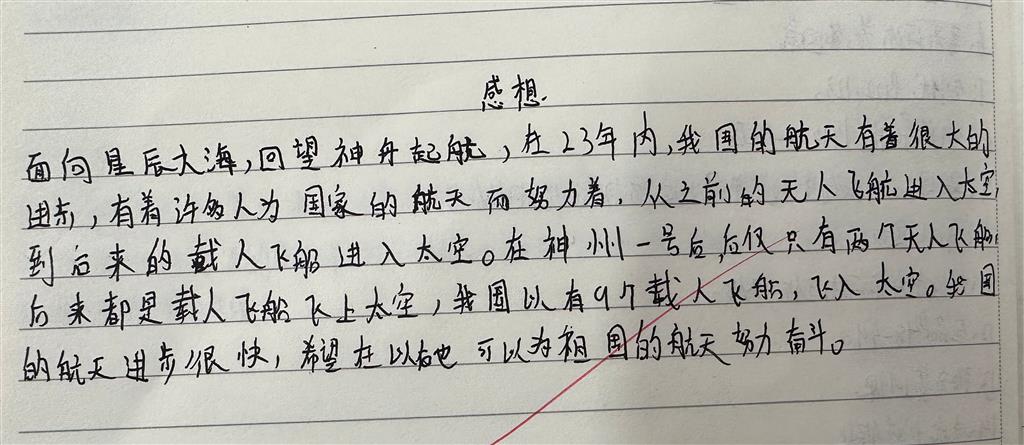 感想.
面向星辰大海,回望神舟起航,在23年内,我国的航天有着很大的
进步,有着许多人为国家的航天而努力着,从之前的无人飞航进入太空,
到后来的载人飞船进入太空。在神州一号后,后仅只有两个无人飞船
后来都是载人飞船飞上太空,我国以有9个载人飞船,飞入太空。我国
的航天进步很快,希望在以右也可以为祖国的航天努力奋斗。